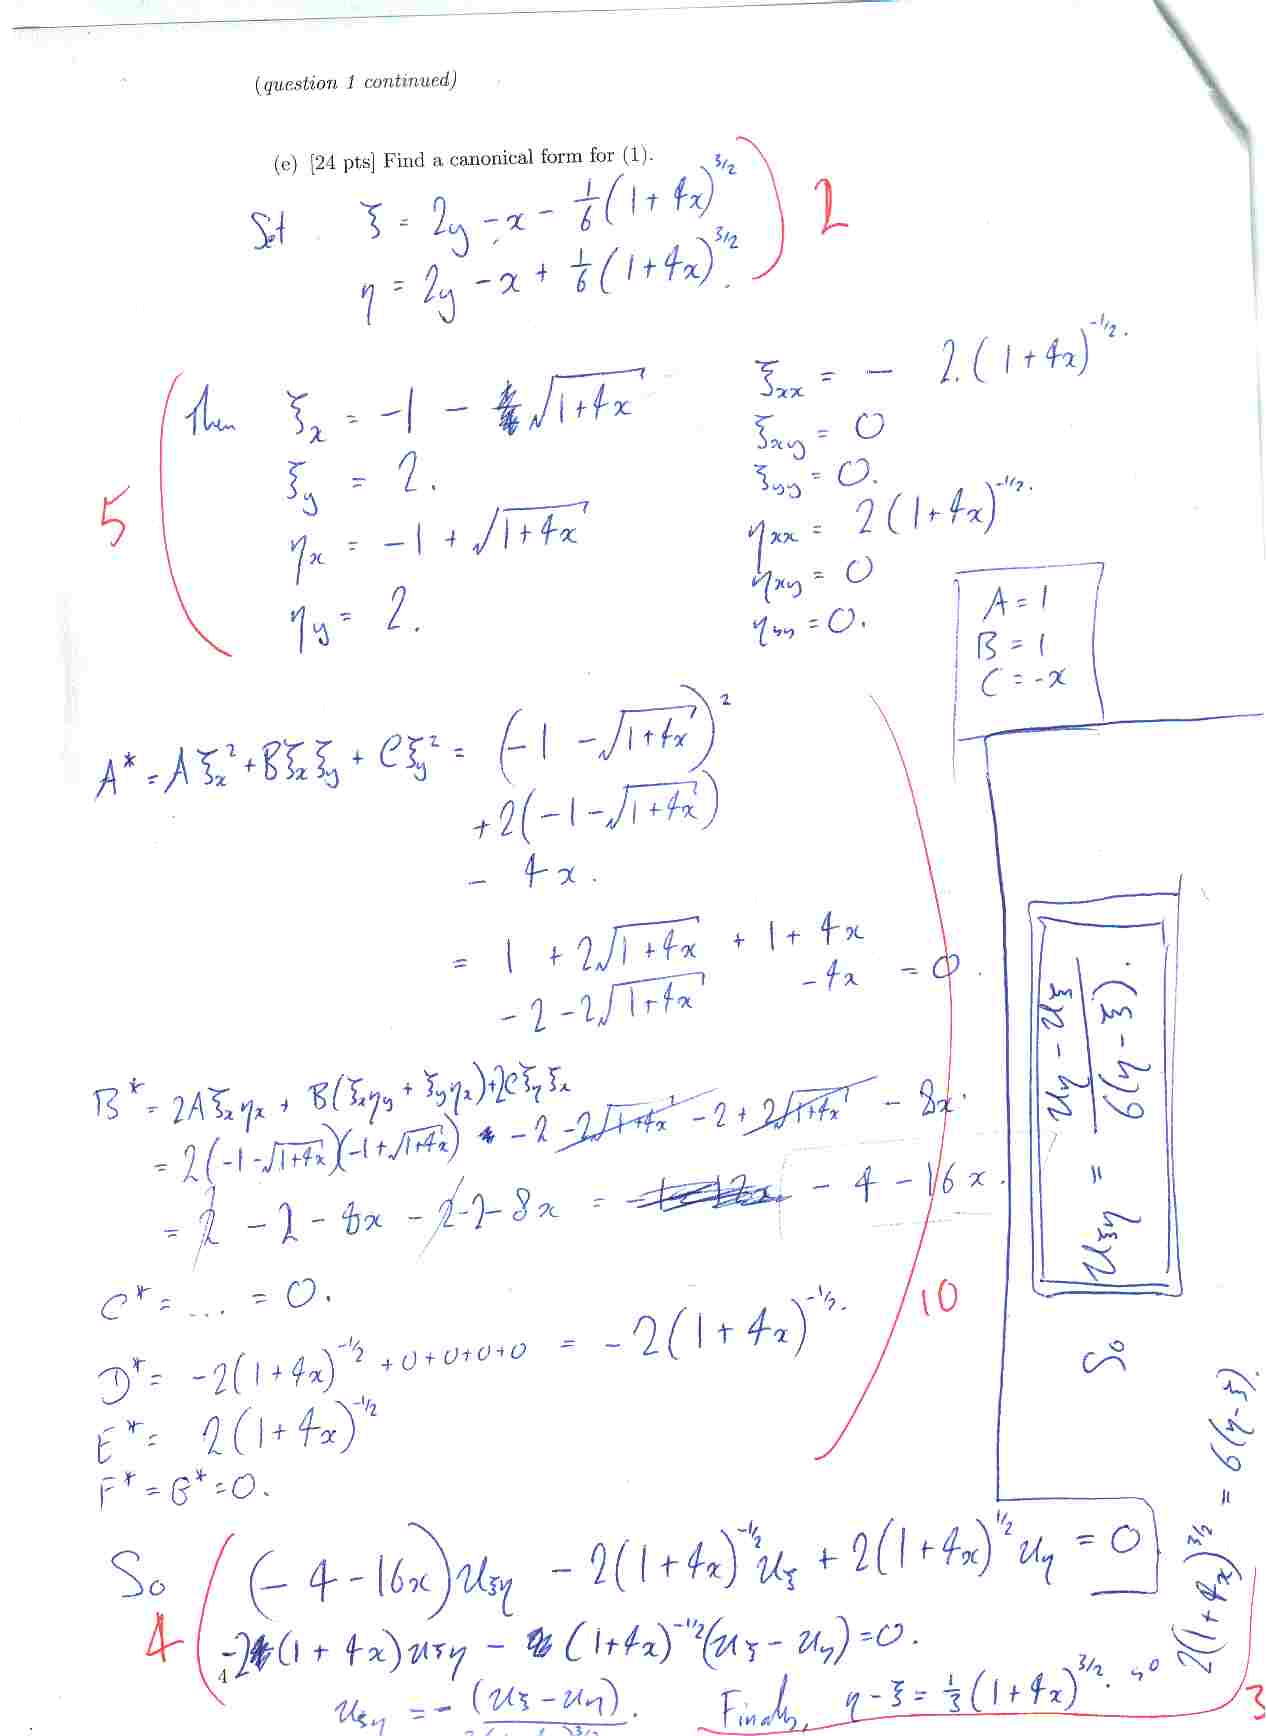 (question 1 continued)
(e) [24 pts] Find a canonical form for (1).
Set ξ = 2y - x - 1/6 (1 + 4x)^{3/2}
η = 2y - x + 1/6 (1 + 4x)^{3/2}.
2
Then ξ_x = -1 - √(1+4x)
ξ_y = 2.
η_x = -1 + √(1+4x)
η_y = 2.
5
ξ_xx = - 2.(1 + 4x)^{-1/2}.
ξ_xy = 0
ξ_yy = 0.
η_xx = 2(1+4x)^{-1/2}.
η_xy = 0
η_yy = 0.
A = 1
B = 1
C = -x
A* = Aξ_x² + Bξ_xξ_y + Cξ_y² = (-1 - √(1+4x))²
+ 2(-1 - √(1+4x))
- 4x.
= 1 + 2√(1+4x) + 1 + 4x
- 2 - 2√(1+4x) - 4x = 0.
B* = 2Aξ_xη_x + B(ξ_xη_y + ξ_yη_x) + 2Cξ_yξ_x
= 2(-1-√(1+4x))(-1+√(1+4x)) - 2 - 2√(1+4x) - 2 + 2√(1+4x) - 8x.
= 2 - 2 - 8x - 2 - 2 - 8x = - 4 - 16x.
C* = ... = 0.
D* = -2(1+4x)^{-1/2} + 0+0+0+0 = -2(1+4x)^{-1/2}.
E* = 2(1+4x)^{-1/2}
F* = G* = 0.
10
So (-4 - 16x)u_ξη - 2(1+4x)^{-1/2}u_ξ + 2(1+4x)^{1/2}u_η = 0
4
(1+4x)u_ξη - (1+4x)^{-1/2}(u_ξ - u_η) = 0.
u_ξη = - (u_ξ - u_η).
Finally, η - ξ = 1/3 (1+4x)^{3/2}. so
3
2(1+4x)^{3/2} = 6(η-ξ).
So
u_ξη = (u_η - u_ξ) / 6(η - ξ).